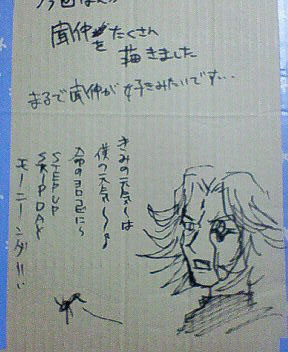 今回はんか
聞仲たくさん
を
描きました
まるで聞仲が好きみたいです…
きみの元気〜は
僕の元気〜♪
命のヨロコビに〜
STEP UP
SKIP DAY
モーニング!!!